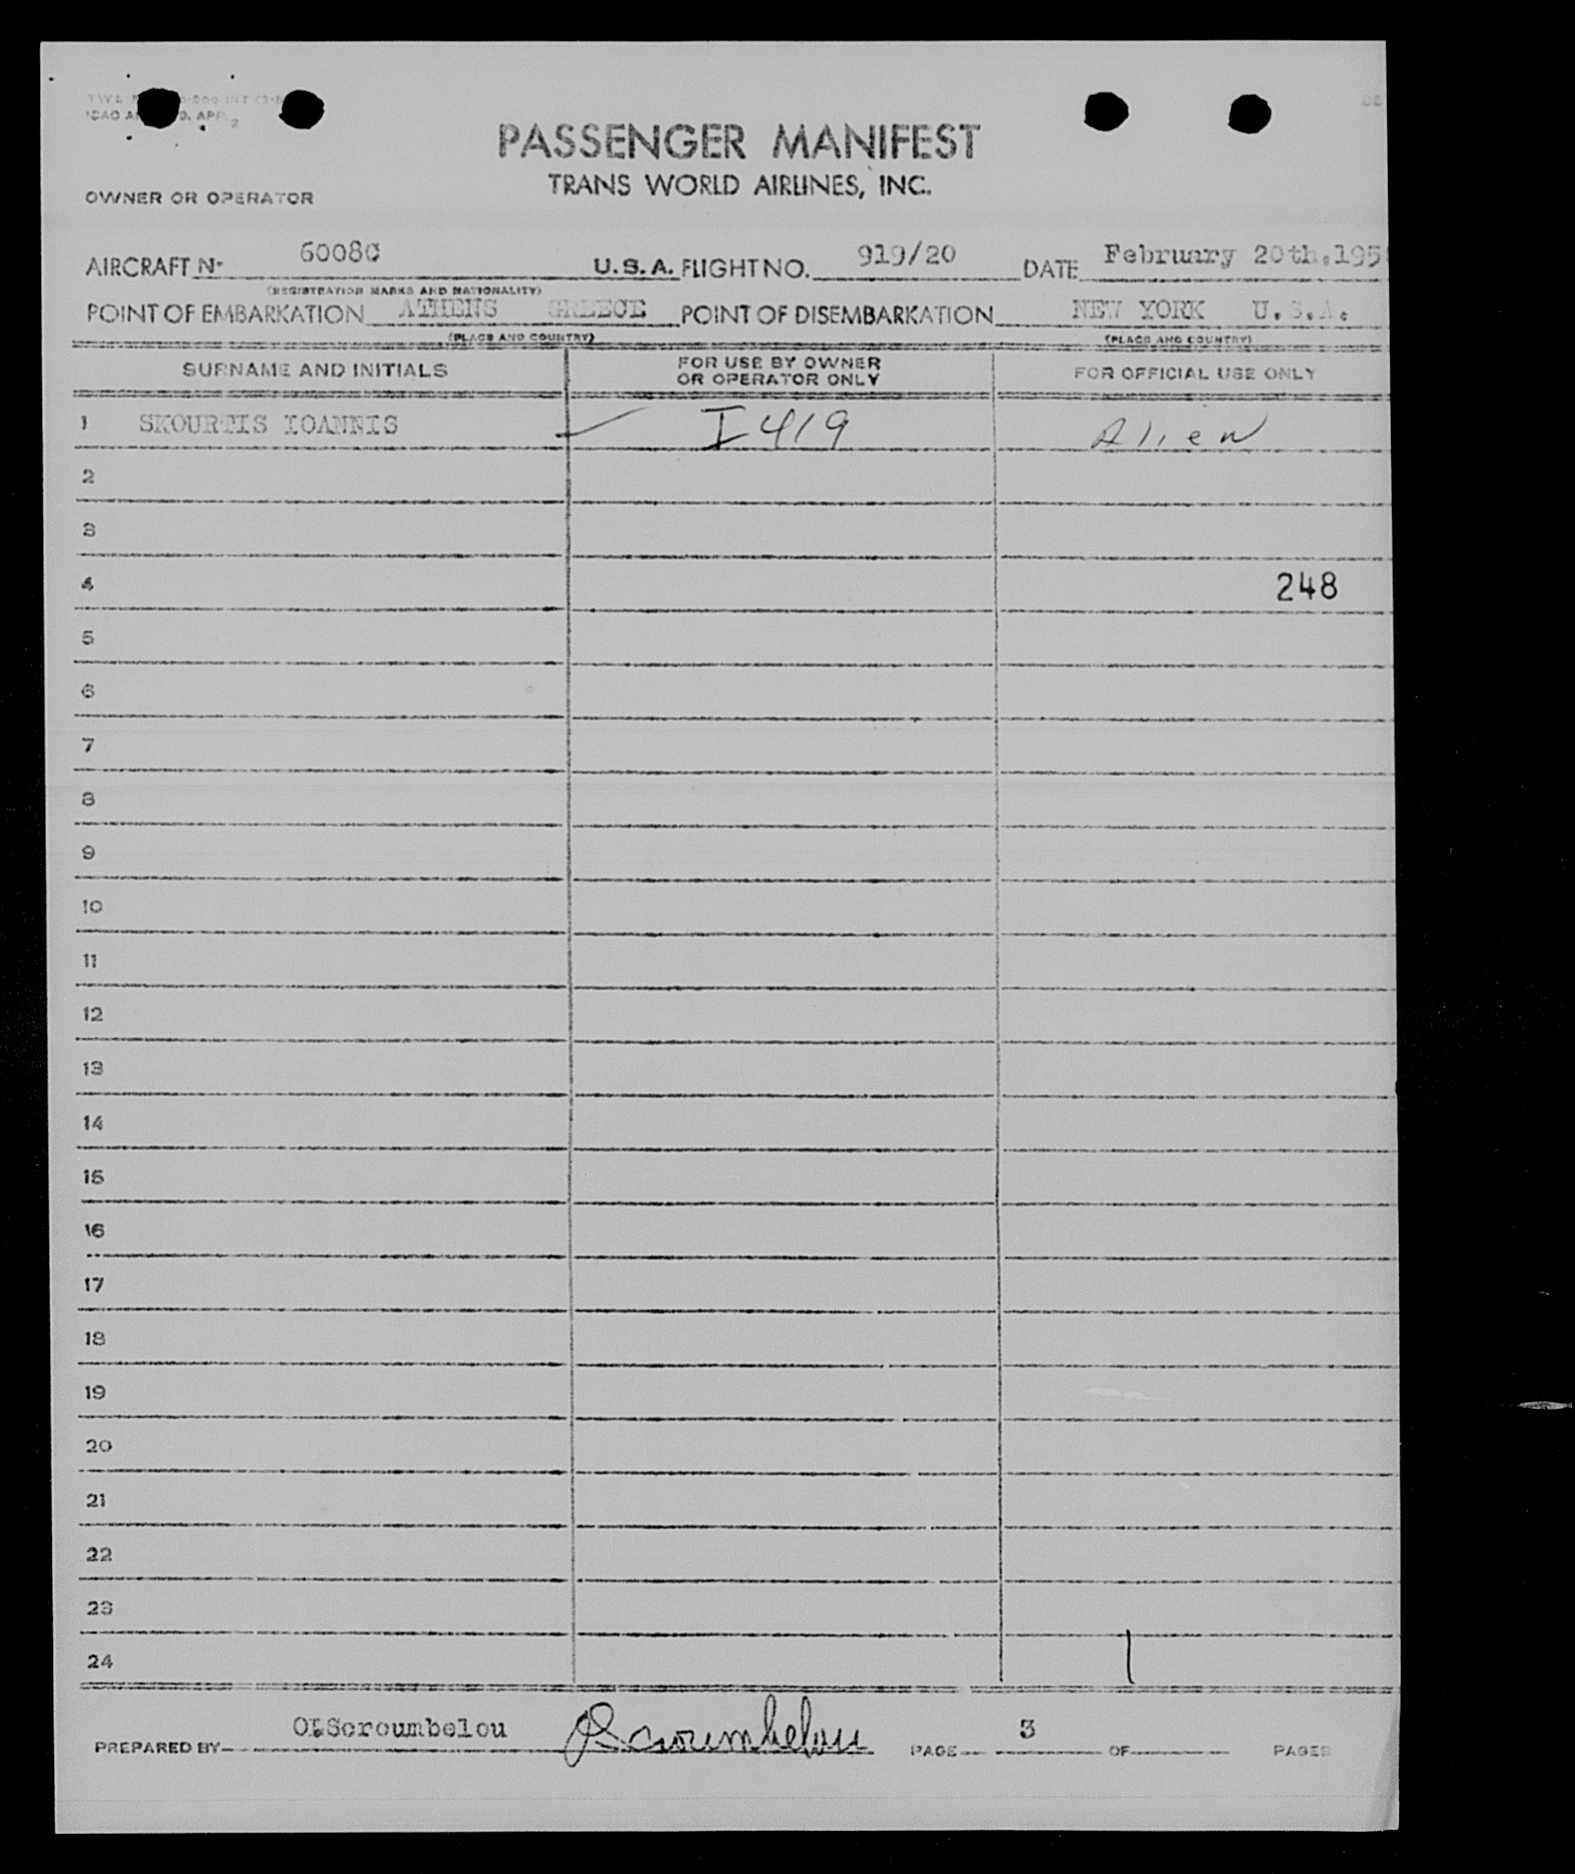 PASSENGER MANIFEST
TRANS WORLD AIRLINES, INC.
OWNER OR OPERATOR
AIRCRAFT Nº 6008C U.S.A. FLIGHT NO. 919/20 DATE February 20th.195
(REGISTRATION MARKS AND NATIONALITY)
POINT OF EMBARKATION ATHENS GREECE POINT OF DISEMBARKATION NEW YORK U.S.A.
(PLACE AND COUNTRY) (PLACE AND COUNTRY)
SURNAME AND INITIALS FOR USE BY OWNER OR OPERATOR ONLY FOR OFFICIAL USE ONLY
1 SKOURTIS IOANNIS I419 Alien
2
3
4 248
5
6
7
8
9
10
11
12
13
14
15
16
17
18
19
20
21
22
23
24
PREPARED BY PAGE 3 OF PAGES